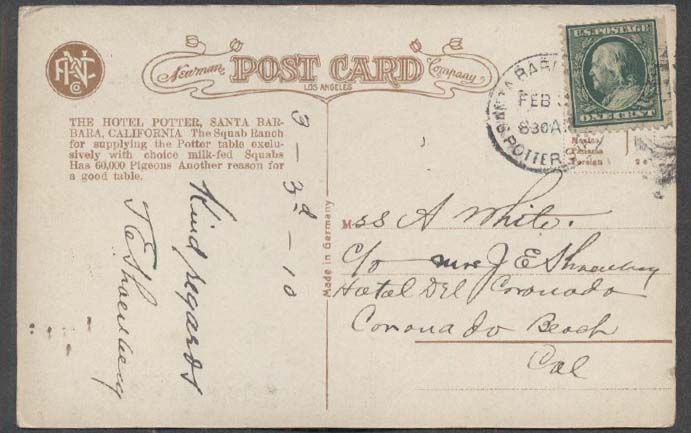 Newman POST CARD Company
LOS ANGELES
THE HOTEL POTTER, SANTA BAR-
BARA, CALIFORNIA The Squab Ranch
for supplying the Potter table exclu-
sively with choice milk-fed Squabs
Has 60,000 Pigeons Another reason for
a good table.
3 - 3d - 10
Kind regards
J E
Made in Germany
U.S. POSTAGE
ONE CENT
SANTA BAR
FEB 3
830A
POTTER
Mexico
Foreign 2c
Mss A White.
c/o Mrs J E
Hotel Del Coronado
Coronado Beach
Cal